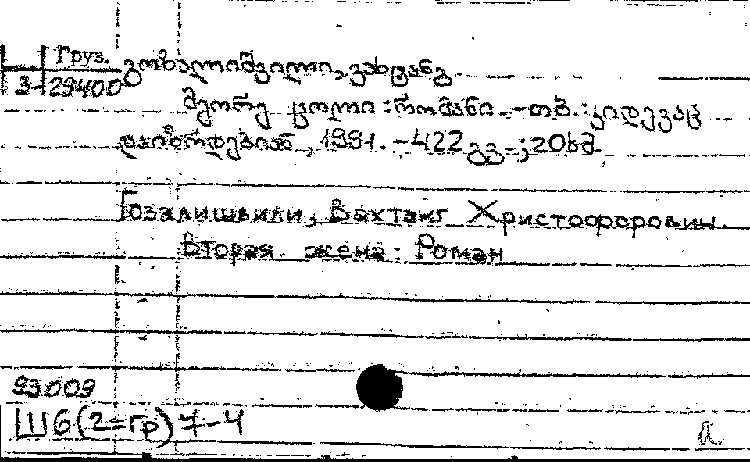 Груз.
3-29400
გოზალიშვილი, ვახტანგ.
მეორე ცოლი : რომანი. - თბ. : კიდევაც
დაიზრდებიან, 1991. - 422 გვ. ; 20სმ
Гозалишвили, Вахтанг Христофорович.
Вторая жена : Роман
93009
Ш6(2=гр)7-4